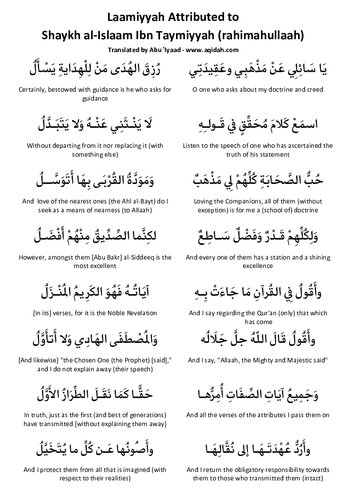 Laamiyyah Attributed to
Shaykh al-Islaam Ibn Taymiyyah (rahimahullaah)
Translated by Abu ʿIyaad - www.aqidah.com
يَا سَائِلِي عَنْ مَذْهَبِي وعَقِيدَتِي
O one who asks about my doctrine and creed
رُزِقَ الهُدَى مَنْ لِلْهِدَايَةِ يَسْأَلُ
Certainly, bestowed with guidance is he who asks for
guidance
اسمَعْ كَلامَ مُحَقِّقٍ فِي قَولِهِ
Listen to the speech of one who has ascertained the
truth of his statement
لَا يَنْثَنِي عَنْهُ وَلا يَتَبَدَّلُ
Without departing from it nor replacing it (with
something else)
حُبُّ الصَّحَابَةِ كُلُّهُمْ لِي مَذْهَبٌ
Loving the Companions, all of them (without
exception) is for me a (school of) doctrine
وَمَوَدَّةُ القُرْبَى بِهَا أَتَوَسَّلُ
And love of the nearest ones (the Ahl al-Bayt) do I
seek as a means of nearness (to Allaah)
وَلِكُلِّهُمْ قَدْرٌ وَفَضْلٌ سَاطِعٌ
And every one of them has a station and a shining
excellence
لكِنَّما الصِّدِّيقُ مِنْهُمْ أَفْضَلُ
However, amongst them [Abu Bakr] al-Siddeeq is the
most excellent
وأَقُولُ فِي القُرآنِ مَا جَاءَتْ بِهِ
And I say regarding the Qur'an (only) that which
has come
آيَاتُهُ فَهُوَ الكَرِيمُ المُنْزَلُ
[In its] verses, for it is the Noble Revelation
وأَقُولُ قَالَ اللهُ جلَّ جَلَالُه
And I say, "Allaah, the Mighty and Majestic said"
وَالْمُصْطَفَى الهَادِي وَلا أَتَأَوَّلُ
[And likewise] "the Chosen One (the Prophet) [said],"
and I do not explain away (their speech)
وَجَمِيعُ آيَاتِ الصِّفَاتِ أُمِرُّهـا
And all the verses of the attributes I pass them on
حقًّا كَمَا نَقَلَ الطِّرَازُ الأَوَّلُ
In truth, just as the first (and best of generations)
have transmitted [without explaining them away]
وأَرُدُّ عُهْدَتَهَا إِلى نُقَّالِها
And I return the obligatory responsibility towards
them to those who transmitted them (intact)
وأَصُونُها عَن كُلِّ ما يُتَخَيَّلُ
And I protect them from all that is imagined (with
respect to their realities)